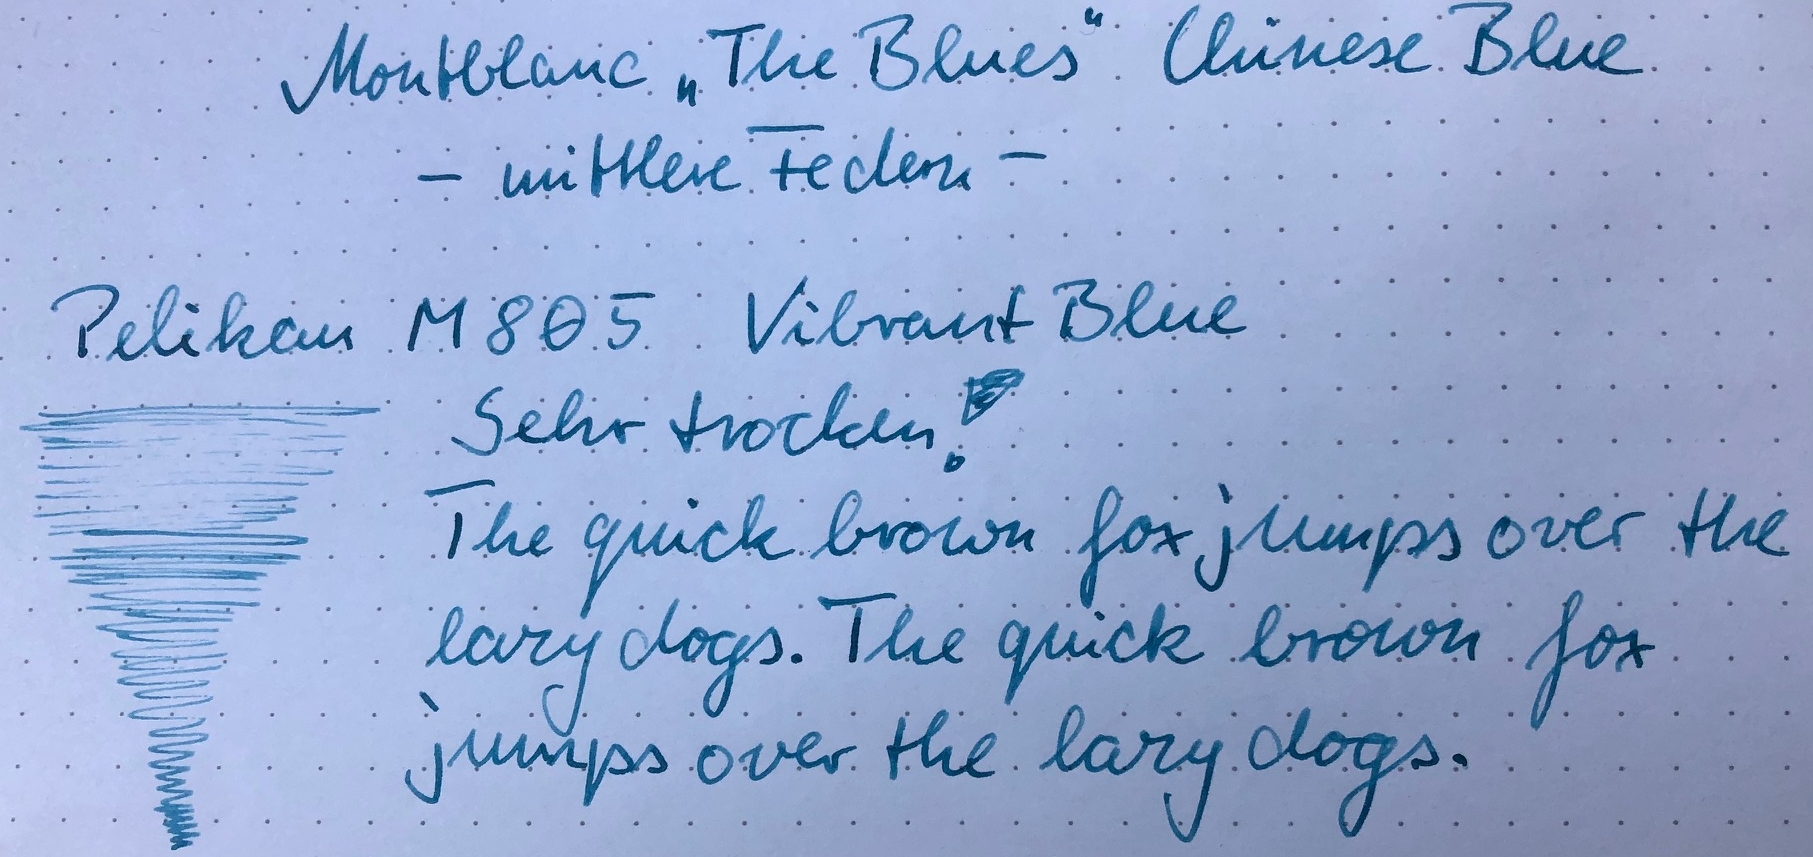 Montblanc „The Blues“ Chinese Blue
- mittlere Federn -
Pelikan M805 Vibrant Blue
Sehr trocken!
The quick brown fox jumps over the
lazy dogs. The quick brown fox
jumps over the lazy dogs.